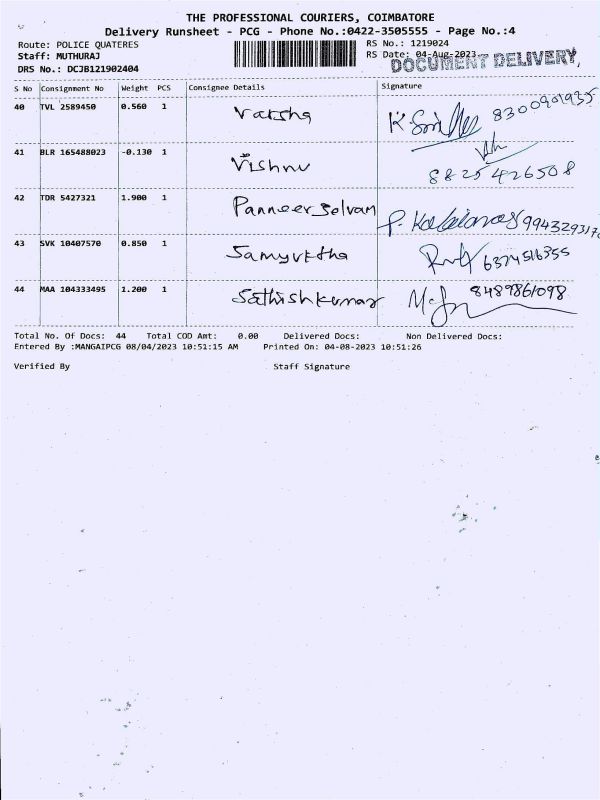 THE PROFESSIONAL COURIERS, COIMBATORE
Delivery Runsheet - PCG - Phone No.:0422-3505555 - Page No.:4
Route: POLICE QUATERES
RS No.: 1219024
Staff: MUTHURAJ
RS Date: 04-Aug-2023
DOCUMENT DELIVERY,
DRS No.: DCJB121902404
S No Consignment No Weight PCS Consignee Details Signature
40 TVL 2589450 0.560 1 Varsha 8300901935
41 BLR 165488023 -0.130 1 Vishnu 8825426508
42 TDR 5427321 1.900 1 Panneer Selvam
43 SVK 10407570 0.850 1 Samyuktha 6374516355
44 MAA 104333495 1.200 1 Sathish kumar 8489861098
Total No. Of Docs: 44 Total COD Amt: 0.00 Delivered Docs: Non Delivered Docs:
Entered By :MANGAIPCG 08/04/2023 10:51:15 AM Printed On: 04-08-2023 10:51:26
Verified By Staff Signature